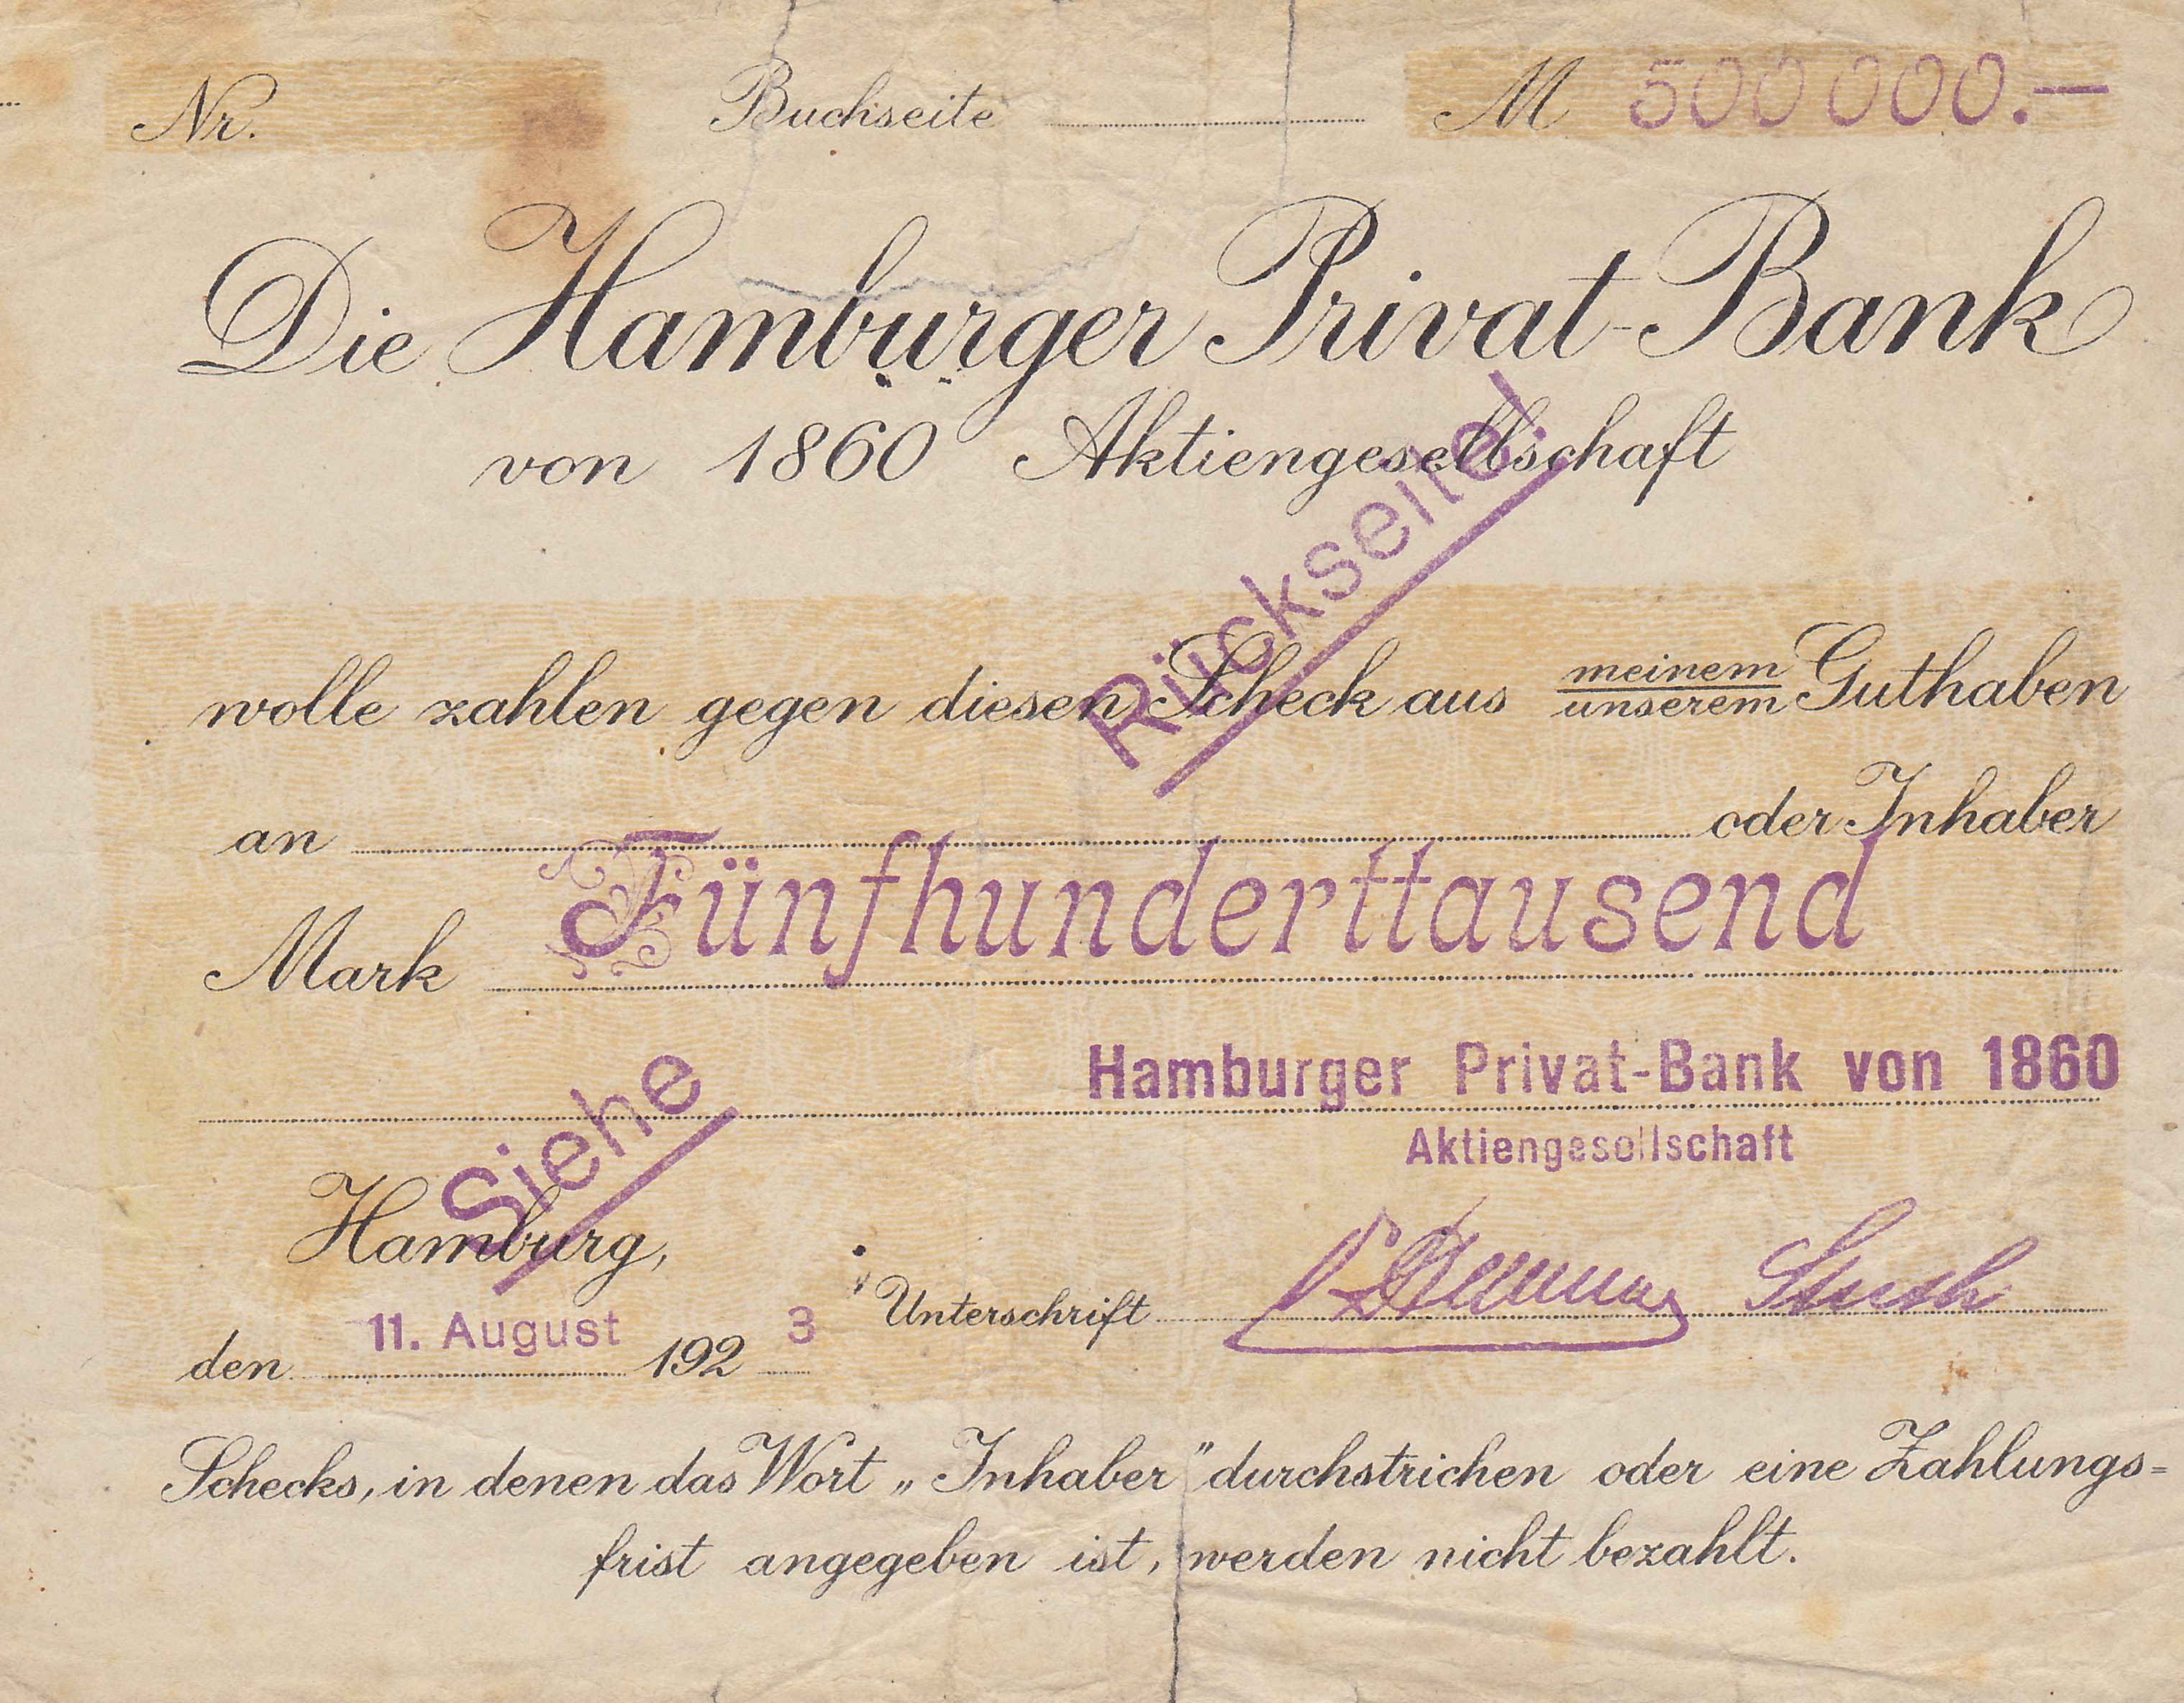 Nr. Buchseite M 500 000.—
Die Hamburger Privat-Bank
von 1860 Aktiengesellschaft
wolle zahlen gegen diesen Scheck aus meinem Guthaben
unserem
an oder Inhaber
Mark Fünfhunderttausend
Siehe Rückseite!
Hamburger Privat-Bank von 1860
Aktiengesellschaft
Hamburg,
den 11. August 1923 Unterschrift
Schecks, in denen das Wort „Inhaber" durchstrichen oder eine Zahlungs=
frist angegeben ist, werden nicht bezahlt.